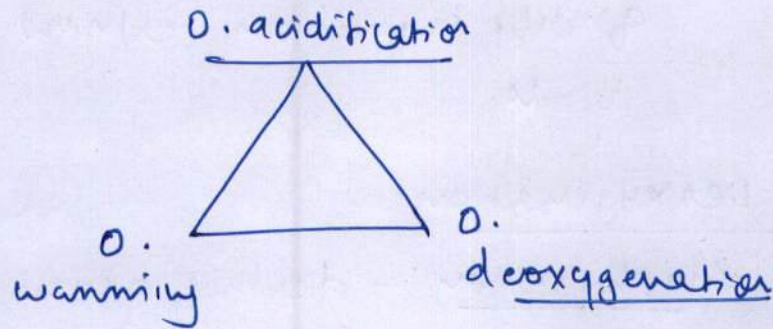 O. acidification
O.
warming
O.
deoxygenation